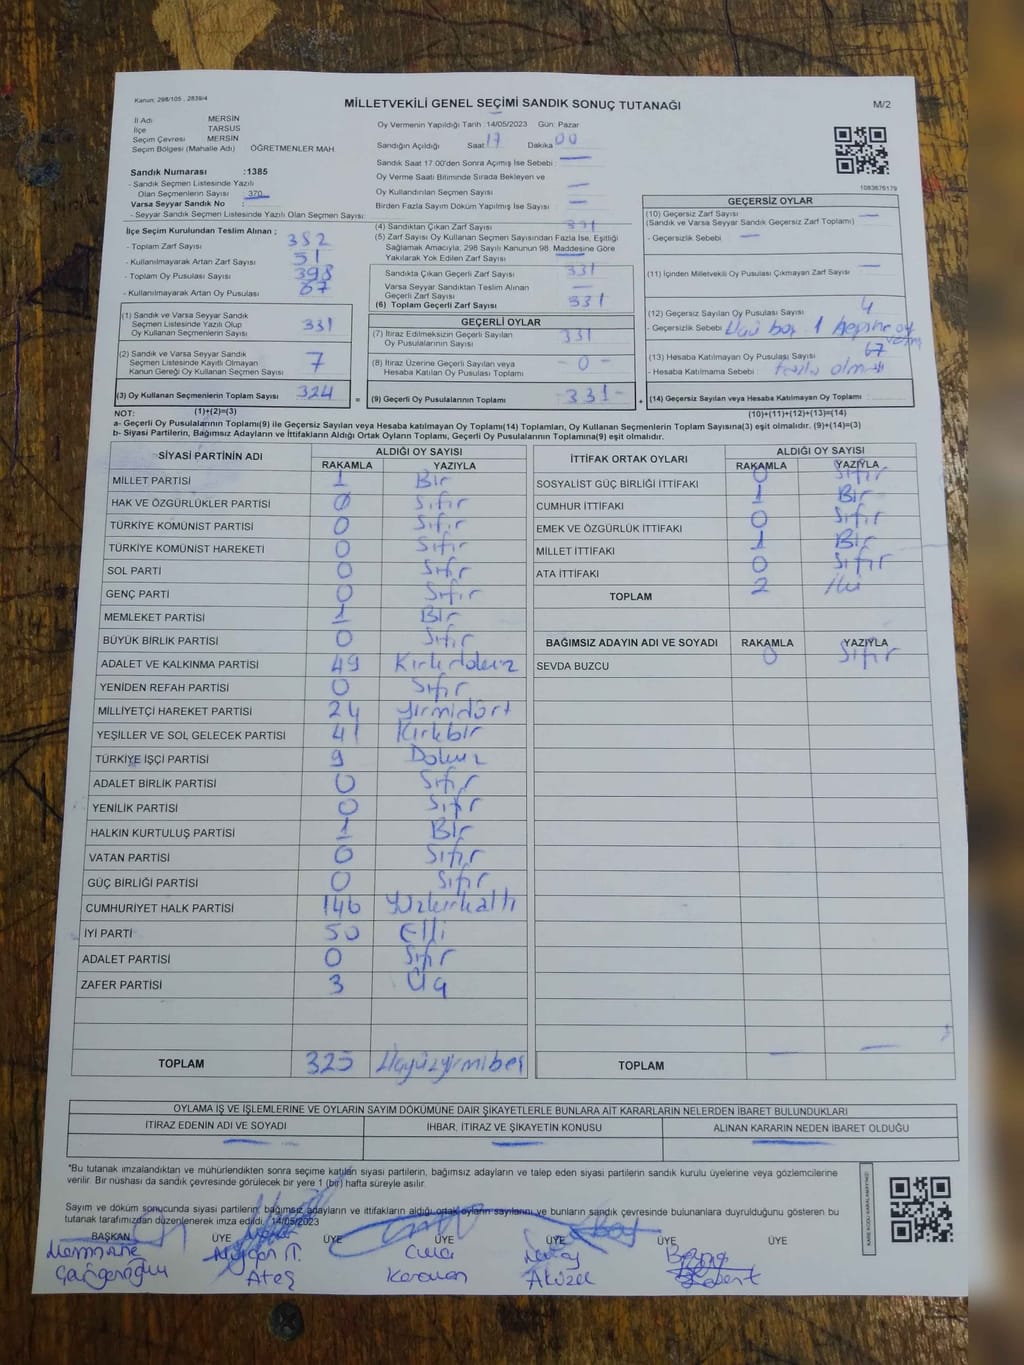 Kanun: 298/105 , 2839/4
MİLLETVEKİLİ GENEL SEÇİMİ SANDIK SONUÇ TUTANAĞI
M/2
İl Adı : MERSİN
İlçe : TARSUS
Seçim Çevresi : MERSİN
Seçim Bölgesi (Mahalle Adı) : ÖĞRETMENLER MAH.
Sandık Numarası :1385
- Sandık Seçmen Listesinde Yazılı
Olan Seçmenlerin Sayısı : 370
Varsa Seyyar Sandık No :
- Seyyar Sandık Seçmen Listesinde Yazılı Olan Seçmen Sayısı:
Oy Vermenin Yapıldığı Tarih :14/05/2023 Gün: Pazar
Sandığın Açıldığı Saat 17 Dakika 00
Sandık Saat 17.00'den Sonra Açımış İse Sebebi : —
Oy Verme Saati Bitiminde Sırada Bekleyen ve
Oy Kullandırılan Seçmen Sayısı —
Birden Fazla Sayım Döküm Yapılmış İse Sayısı —
1083676179
İlçe Seçim Kurulundan Teslim Alınan ;
- Toplam Zarf Sayısı : 382
- Kullanılmayarak Artan Zarf Sayısı : 51
- Toplam Oy Pusulası Sayısı : 398
- Kullanılmayarak Artan Oy Pusulası : 67
(1) Sandık ve Varsa Seyyar Sandık
Seçmen Listesinde Yazılı Olup
Oy Kullanan Seçmenlerin Sayısı 331
(2) Sandık ve Varsa Seyyar Sandık
Seçmen Listesinde Kayıtlı Olmayan
Kanun Gereği Oy Kullanan Seçmen Sayısı 7
(3) Oy Kullanan Seçmenlerin Toplam Sayısı 324
(4) Sandıktan Çıkan Zarf Sayısı : 331
(5) Zarf Sayısı Oy Kullanan Seçmen Sayısından Fazla İse, Eşitliği
Sağlamak Amacıyla; 298 Sayılı Kanunun 98. Maddesine Göre
Yakılarak Yok Edilen Zarf Sayısı : —
Sandıkta Çıkan Geçerli Zarf Sayısı : 331
Varsa Seyyar Sandıktan Teslim Alınan
Geçerli Zarf Sayısı : —
(6) Toplam Geçerli Zarf Sayısı : 331
GEÇERLİ OYLAR
(7) İtiraz Edilmeksizin Geçerli Sayılan
Oy Pusulalarının Sayısı 331
(8) İtiraz Üzerine Geçerli Sayılan veya
Hesaba Katılan Oy Pusulası Toplamı - 0 -
= (9) Geçerli Oy Pusulalarının Toplamı - 331 -
GEÇERSİZ OYLAR
(10) Geçersiz Zarf Sayısı : —
(Sandık ve Varsa Seyyar Sandık Geçersiz Zarf Toplamı)
- Geçersizlik Sebebi : —
(11) İçinden Milletvekili Oy Pusulası Çıkmayan Zarf Sayısı : —
(12) Geçersiz Sayılan Oy Pusulası Sayısı : 4
- Geçersizlik Sebebi : boş 1 oy
(13) Hesaba Katılmayan Oy Pusulası Sayısı : 67
- Hesaba Katılmama Sebebi :
+ (14) Geçersiz Sayılan veya Hesaba Katılmayan Oy Toplamı :
NOT: (1)+(2)=(3) (10)+(11)+(12)+(13)=(14)
a- Geçerli Oy Pusulalarının Toplamı(9) ile Geçersiz Sayılan veya Hesaba katılmayan Oy Toplamı(14) Toplamları, Oy Kullanan Seçmenlerin Toplam Sayısına(3) eşit olmalıdır. (9)+(14)=(3)
b- Siyasi Partilerin, Bağımsız Adayların ve İttifakların Aldığı Ortak Oyların Toplamı, Geçerli Oy Pusulalarının Toplamına(9) eşit olmalıdır.
SİYASİ PARTİNİN ADI ALDIĞI OY SAYISI
RAKAMLA YAZIYLA
MİLLET PARTİSİ 1 Bir
HAK VE ÖZGÜRLÜKLER PARTİSİ 0 Sıfır
TÜRKİYE KOMÜNİST PARTİSİ 0 Sıfır
TÜRKİYE KOMÜNİST HAREKETİ 0 Sıfır
SOL PARTİ 0 Sıfır
GENÇ PARTİ 0 Sıfır
MEMLEKET PARTİSİ 1 Bir
BÜYÜK BİRLİK PARTİSİ 0 Sıfır
ADALET VE KALKINMA PARTİSİ 49 Kırkdokuz
YENİDEN REFAH PARTİSİ 0 Sıfır
MİLLİYETÇİ HAREKET PARTİSİ 24 yirmidört
YEŞİLLER VE SOL GELECEK PARTİSİ 41 Kırkbir
TÜRKİYE İŞÇİ PARTİSİ 9 Dokuz
ADALET BİRLİK PARTİSİ 0 Sıfır
YENİLİK PARTİSİ 0 Sıfır
HALKIN KURTULUŞ PARTİSİ 1 Bir
VATAN PARTİSİ 0 Sıfır
GÜÇ BİRLİĞİ PARTİSİ 0 Sıfır
CUMHURİYET HALK PARTİSİ 146 Yüzkırkaltı
İYİ PARTİ 50 Elli
ADALET PARTİSİ 0 Sıfır
ZAFER PARTİSİ 3 Üç
TOPLAM 325 Üçyüzyirmibeş
İTTİFAK ORTAK OYLARI ALDIĞI OY SAYISI
RAKAMLA YAZIYLA
SOSYALİST GÜÇ BİRLİĞİ İTTİFAKI 0 Sıfır
CUMHUR İTTİFAKI 1 Bir
EMEK VE ÖZGÜRLÜK İTTİFAKI 0 Sıfır
MİLLET İTTİFAKI 1 Bir
ATA İTTİFAKI 0 Sıfır
TOPLAM 2 İki
BAĞIMSIZ ADAYIN ADI VE SOYADI RAKAMLA YAZIYLA
SEVDA BUZCU 0 Sıfır
TOPLAM — —
OYLAMA İŞ VE İŞLEMLERİNE VE OYLARIN SAYIM DÖKÜMÜNE DAİR ŞİKAYETLERLE BUNLARA AİT KARARLARIN NELERDEN İBARET BULUNDUKLARI
İTİRAZ EDENİN ADI VE SOYADI İHBAR, İTİRAZ VE ŞİKAYETİN KONUSU ALINAN KARARIN NEDEN İBARET OLDUĞU
— — —
"Bu tutanak imzalandıktan ve mühürlendikten sonra seçime katılan siyasi partilerin, bağımsız adayların ve talep eden siyasi partilerin sandık kurulu üyelerine veya gözlemcilerine
verilir. Bir nüshası da sandık çevresinde görülecek bir yere 1 (bir) hafta süreyle asılır.
Sayım ve döküm sonucunda siyasi partilerin, bağımsız adayların ve ittifakların aldığı ortak oyların sayılarını ve bunların sandık çevresinde bulunanlara duyrulduğunu gösteren bu
tutanak tarafımızdan düzenlenerek imza edildi. 14/05/2023
BAŞKAN ÜYE ÜYE ÜYE ÜYE ÜYE
Ateş Aküzel
KARE KODU KARALAMAYINIZ!